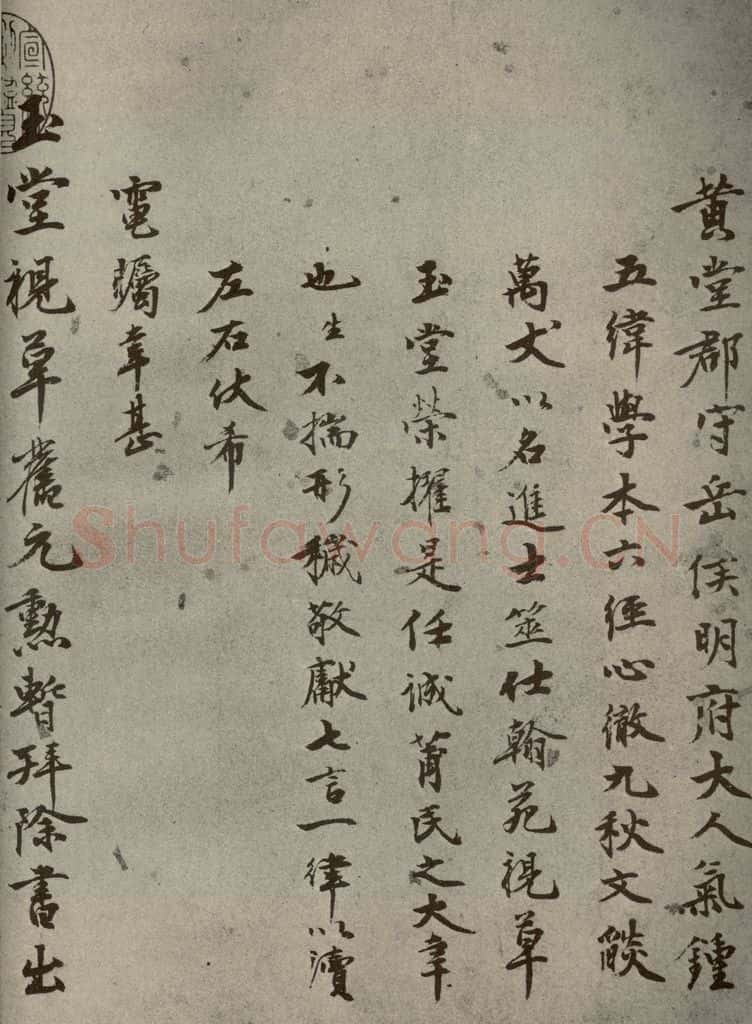 黄堂郡守岳侯明府大人氣鍾
五緯學本六經心徹九秋文燄
萬丈以名進士筮仕翰苑視草
玉堂榮擢是任誠莆民之大幸
也生不揣形穢敬獻七言一律以瀆
左右伏希
電矚幸甚
玉堂視草舊元勲暫拜除書出
Shufawang.CN